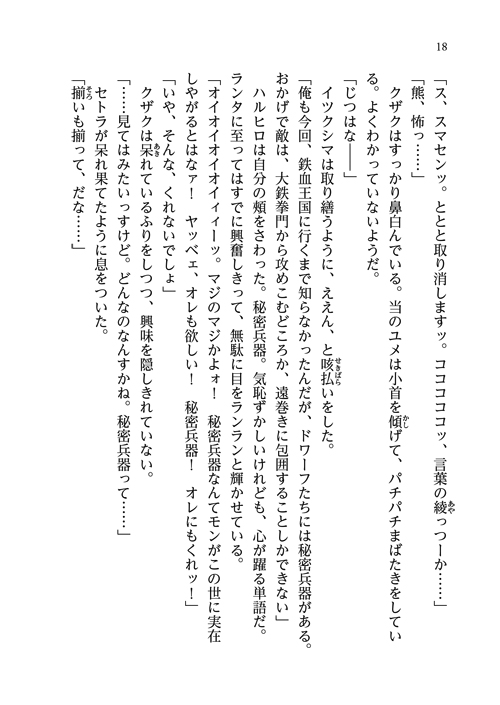 18
「ス、スマセンッ。ととと取り消しますッ。コココココッ、言葉の綾っつーか……」
「熊、怖っ……」
クザクはすっかり鼻白んでいる。当のユメは小首を傾げて、パチパチまばたきをしてい
る。よくわかっていないようだ。
「じつはな――」
イツクシマは取り繕うように、ええん、と咳払いをした。
「俺も今回、鉄血王国に行くまで知らなかったんだが、ドワーフたちには秘密兵器がある。
おかげで敵は、大鉄拳門から攻めこむどころか、遠巻きに包囲することしかできない」
ハルヒロは自分の頬をさわった。秘密兵器。気恥ずかしいけれども、心が躍る単語だ。
ランタに至ってはすでに興奮しきって、無駄に目をランランと輝かせている。
「オイオイオイオイィィーッ。マジのマジかよォ！　秘密兵器なんてモンがこの世に実在
しやがるとはなァ！　ヤッベェ、オレも欲しい！　秘密兵器！　オレにもくれッ！」
「いや、そんな、くれないでしょ」
クザクは呆れているふりをしつつ、興味を隠しきれていない。
「……見てはみたいっすけど。どんなのなんすかね。秘密兵器って……」
セトラが呆れ果てたように息をついた。
「揃いも揃って、だな……」